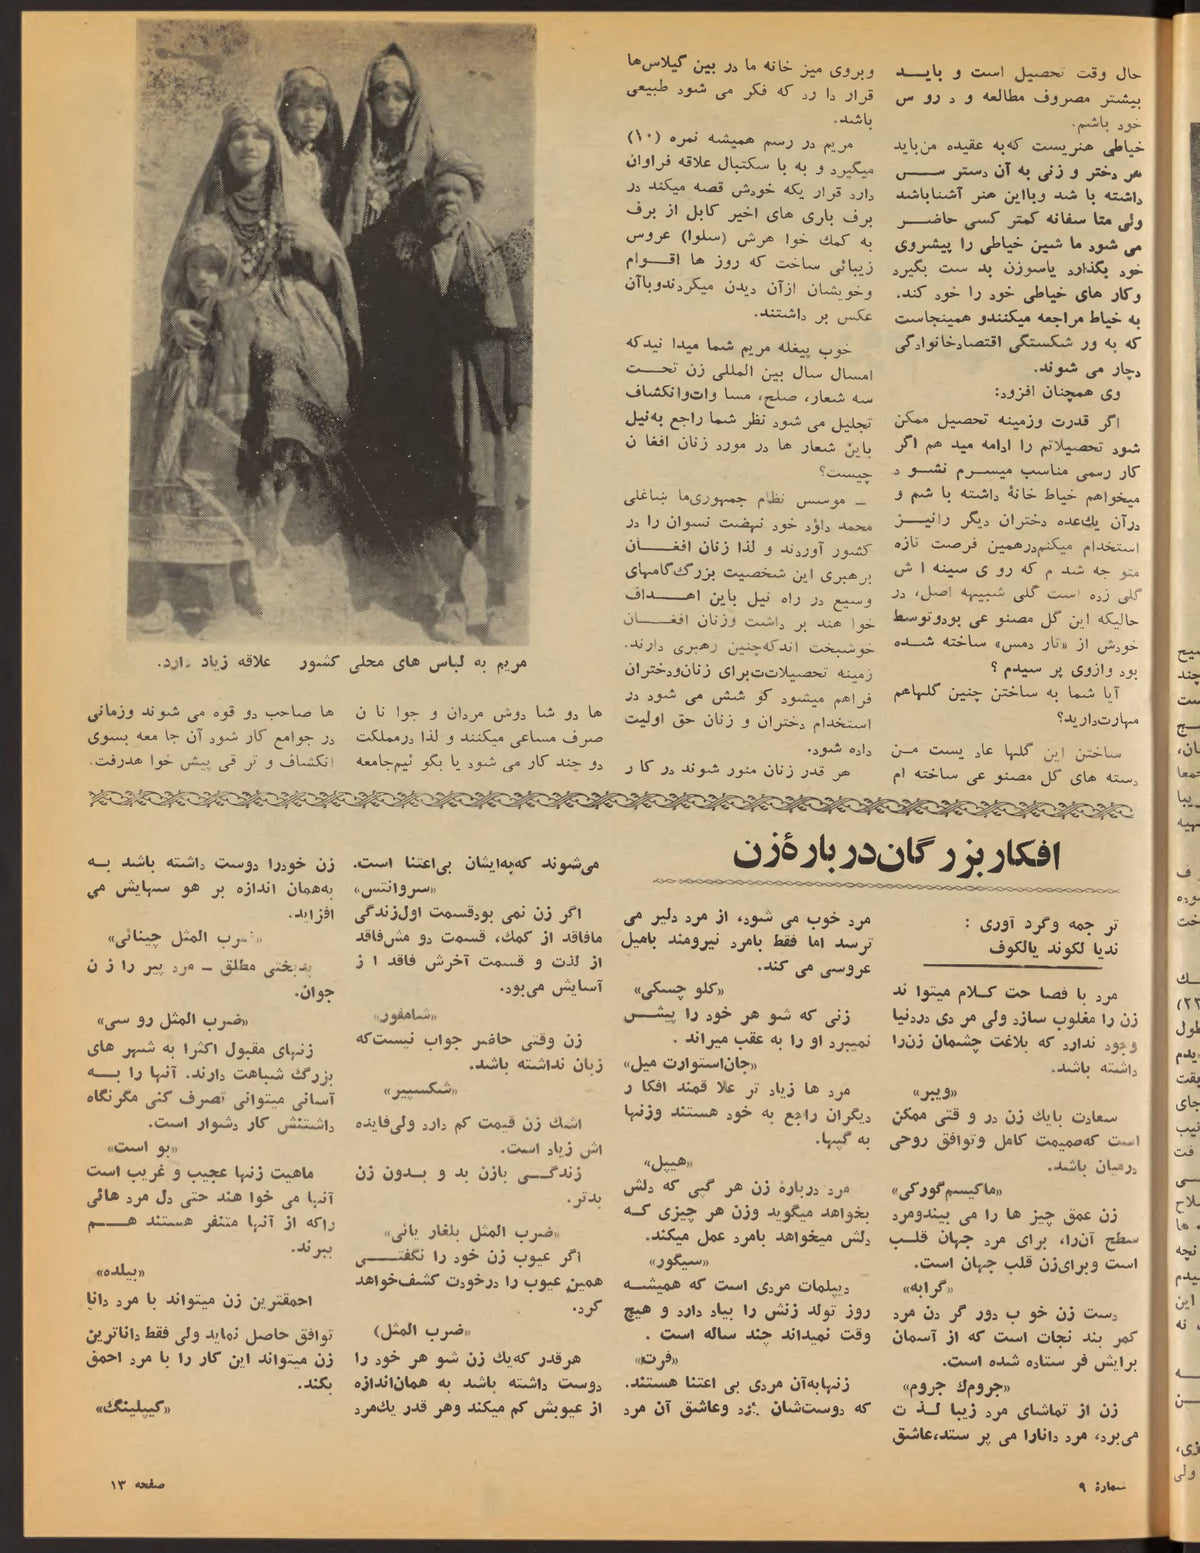 حال وقت تحصیل است و بایـــد
بیشتر مصروف مطالعه و د رو س
خود باشم.
خیاطی هنریست که‌به عقیده من‌باید
هر دختر و زنی به آن دستر ســـس
داشته با شد وبااین هنر آشناباشد
ولی متا سفانه کمتر کسی حاضـــر
می شود ما شین خیاطی را پیشروی
خود بگذارد یاسوزن بد ست بگیرد
وکار های خیاطی خود را خود کند.
به خیاط مراجعه میکنندو همینجاست
که به ور شکستگی اقتصادخانوادگی
دچار می شوند.
وی همچنان افزود:
اگر قدرت وزمینه تحصیل ممکن
شود تحصیلاتم را ادامه مید هم اگر
کار رسمی مناسب میسـرم نشـو د
میخواهم خیاط خانهٔ داشته با شم و
درآن یک‌عده دختران دیگر رانیـــز
استخدام میکنم‌درهمین فرصت تازه
متو جه شد م که رو ی سینه ا ش
گلی زده است گلی شبیهه اصل، در
حالیکه این گل مصنو عی بودوتوسط
خودش از «تار دمس» ساخته شـــده
بود وازوی پر سیدم ؟
آیا شما به ساختن چنین گلهاهم
مهارت‌دارید؟
ساختن این گلها عاد یست مـــن
دسته های گل مصنو عی ساخته ام
وبروی میز خانه ما در بین گیلاس‌ها
قرار دا رد که فکر می شود طبیعی
باشد.
مریم در رسم همیشه نمره (۱۰)
میگیرد و به با سکتبال علاقه فراوان
دارد قرار یکه خودش قصه میکند در
برف باری های اخیر کابل از برف
به کمك خوا هرش (سلوا) عروس
زیبائی ساخت که روز ها اقـــوام
وخویشان ازآن دیدن میکردندوباآن
عکس بر داشتند.
خوب پیغله مریم شما میدا نیدکه
امسال سال بین المللی زن تحـــت
سه شعار، صلح، مسا وات‌وانکشاف
تجلیل می شود نظر شما راجع به‌نیل
باین شعار ها در مورد زنان افغا ن
چیست؟
ـ موسس نظام جمهوری‌ما ښاغلی
محمد داؤد خود نهضت نسوان را در
کشور آوردند و لذا زنان افغـــان
برهبری این شخصیت بزرگ‌گامهای
وسیع در راه نیل باین اهـــداف
خوا هند بر داشت وزنان افغـــان
خوشبخت اندکه‌چنین رهبری دارند.
زمینه تحصیلات‌برای زنان‌ودختران
فراهم میشود کو شش می شود در
استخدام دختران و زنان حق اولیت
داده شود.
هر قدر زنان منور شوند در کا ر
مریم به لباس های محلی کشور علاقه زیاد دارد.
ها دو شا دوش مردان و جوا نا ن
صرف مساعی میکنند و لذا درمملکت
دو چند کار می شود یا بگو ئیم‌جامعه
ها صاحب دو قوه می شوند وزمانی
در جوامع کار شود آن جا معه بسوی
انکشاف و تر قی پیش خوا هدرفت.
افکاربزرگان‌دربارهٔ‌زن
تر جمه وگرد آوری :
ندیا لکوند یالکوف
مرد با فصا حت کـلام میتوا ند
زن را مغلوب سازد ولی مر دی دردنیا
وجود ندارد که بلاغت چشمان زن‌را
داشته باشد.
«ویبر»
سعادت بایك زن در و قتی ممکن
است که‌صمیمت کامل وتوافق روحی
درمیان باشد.
«ماکیسم‌گورکی»
زن عمق چیز ها را می بیندومرد
سطح آن‌را، برای مرد جهان قلـــب
است وبرای‌زن قلب جهان است.
«گرابه»
دست زن خو ب دور گر دن مرد
کمر بند نجات است که از آسمان
برایش فر ستاده شده است.
«جروم‌ك جروم»
زن از تماشای مرد زیبا لـذ ت
می‌برد، مرد دانارا می پر ستد،عاشق
مرد خوب می شود، از مرد دلیر می
ترسد اما فقط بامرد نیرومند بامیل
عروسی می کند.
«کلو چسکی»
زنی که شو هر خود را پیشـــس
نمیبرد او را به عقب میراند .
«جان‌استوارت میل»
مرد ها زیاد تر علا قمند افکا ر
دیگران راجع به خود هستند وزنها
به گپها.
«هیپل»
مرد دربارهٔ زن هر گپی که دلش
بخواهد میگوید وزن هر چیزی کـه
دلش میخواهد بامرد عمل میکند.
«سیگور»
دیپلمات مردی است که همیشـــه
روز تولد زنش را بیاد دارد و هیچ
وقت نمیداند چند ساله است .
«فرت»
زنهابه‌آن مردی بی اعتنا هستند.
که دوست‌شان دارد وعاشق آن مرد
می‌شوند که‌به‌ایشان بی‌اعتنا است.
«سروانتس»
اگر زن نمی بودقسمت اول‌زندگی
مافاقد از کمك، قسمت دو مش‌فاقد
از لذت و قسمت آخرش فاقد ا ز
آسایش می‌بود.
«شامفور»
زن وقتی حاضر جواب نیست‌که
زبان نداشته باشد.
«شکسپیر»
اشك زن قیمت کم دارد ولی‌فایده
اش زیاد است.
زندگـــی بازن بد و بـــدون زن
بدتر.
«ضرب المثل بلغار یائی»
اگر عیوب زن خود را نگفتـــی
همین عیوب را درخودت کشف‌خواهد
کرد.
«ضرب المثل)
هرقدر که‌یك زن شو هر خود را
دوست داشته باشد به همان‌اندازه
از عیوبش کم میکند وهر قدر یك‌مرد
زن خودرا دوست داشته باشد بـــه
به‌همان اندازه بر هو سهایش می
افزاید.
«ضرب المثل چینائی»
بدبختی مطلق ـ مرد پیر را ز ن
جوان.
«ضرب المثل رو سی»
زنهای مقبول اکثرا به شهر های
بزرگ شباهت دارند. آنها را بـــه
آسانی میتوانی تصرف کنی مگرنگاه
داشتنش کار دشوار است.
«بو است»
ماهیت زنها عجیب و غریب است
آنها می خوا هند حتی دل مرد هائی
راکه از آنها متنفر هستند هـــم
ببرند.
«بیلده»
احمقترین زن میتواند با مرد دانا
توافق حاصل نماید ولی فقط داناترین
زن میتواند این کار را با مرد احمق
بکند.
«کیپلینگ»
شمارهٔ ۹
صفحه ۱۳